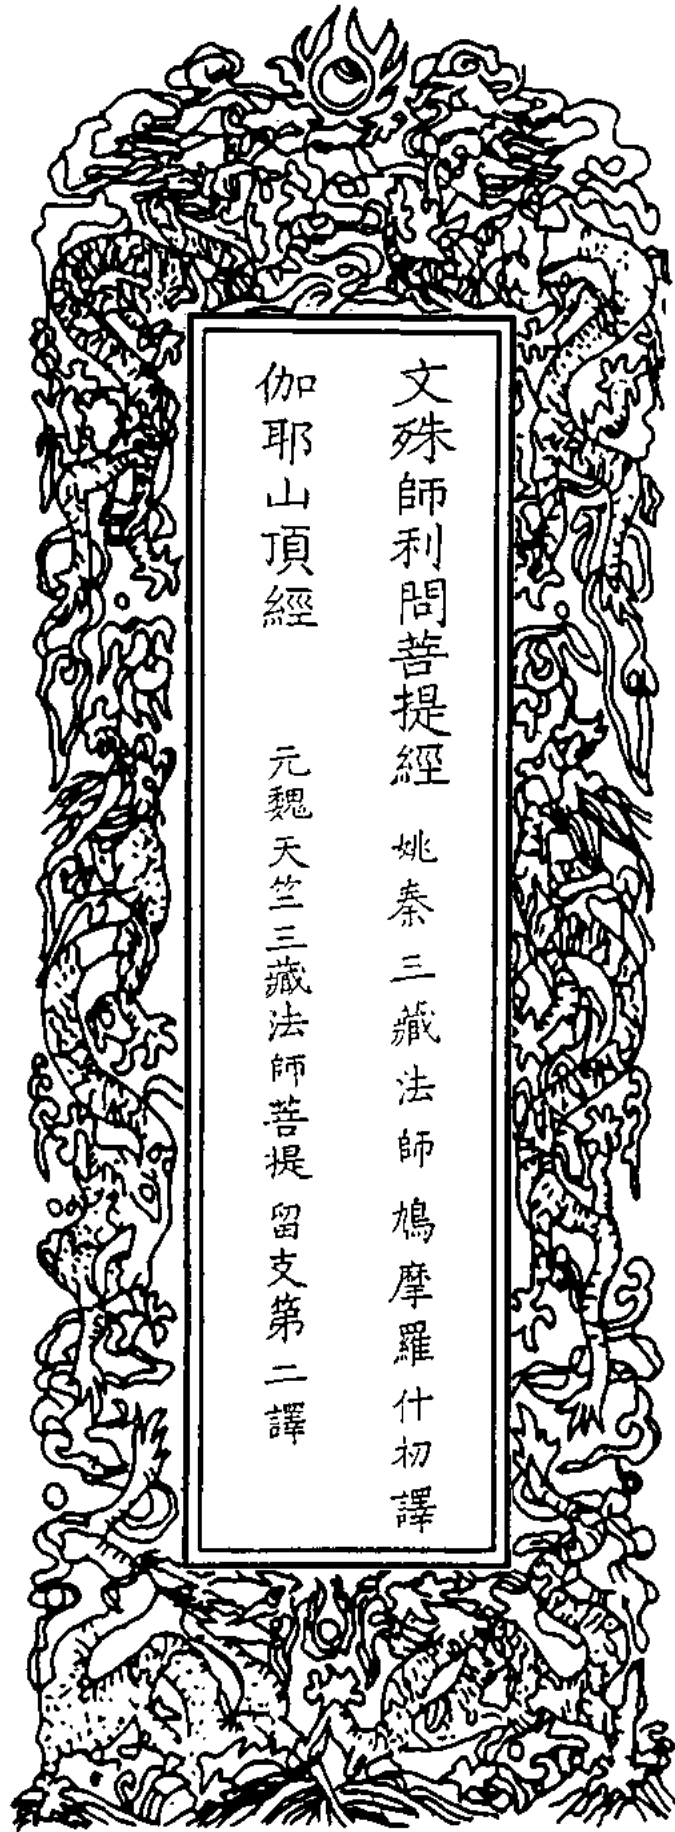 文殊師利問菩提經 姚秦三藏法師鳩摩羅什初譯
伽耶山頂經 元魏天竺三藏法師菩提留支第二譯